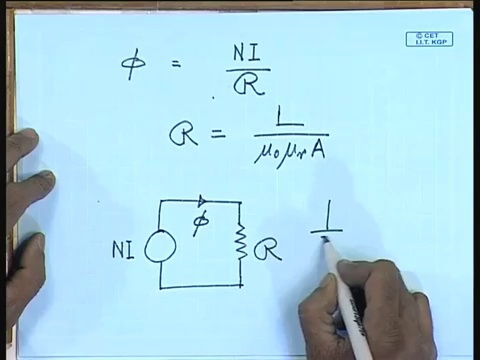 © CET
I.I.T. KGP
ϕ = NI / R
R = L / μ₀ μᵣ A
NI ϕ R
1